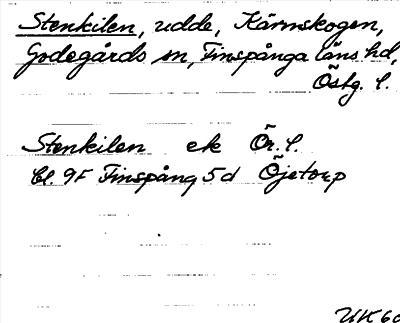 Stenkilen, udde, Kärnskogen,
Godegårds sn, Finspånga läns hd,
Östg. l.
Stenkilen ek Ör. l.
Bl. 9F Finspång 5d Öjetorp
UK 60